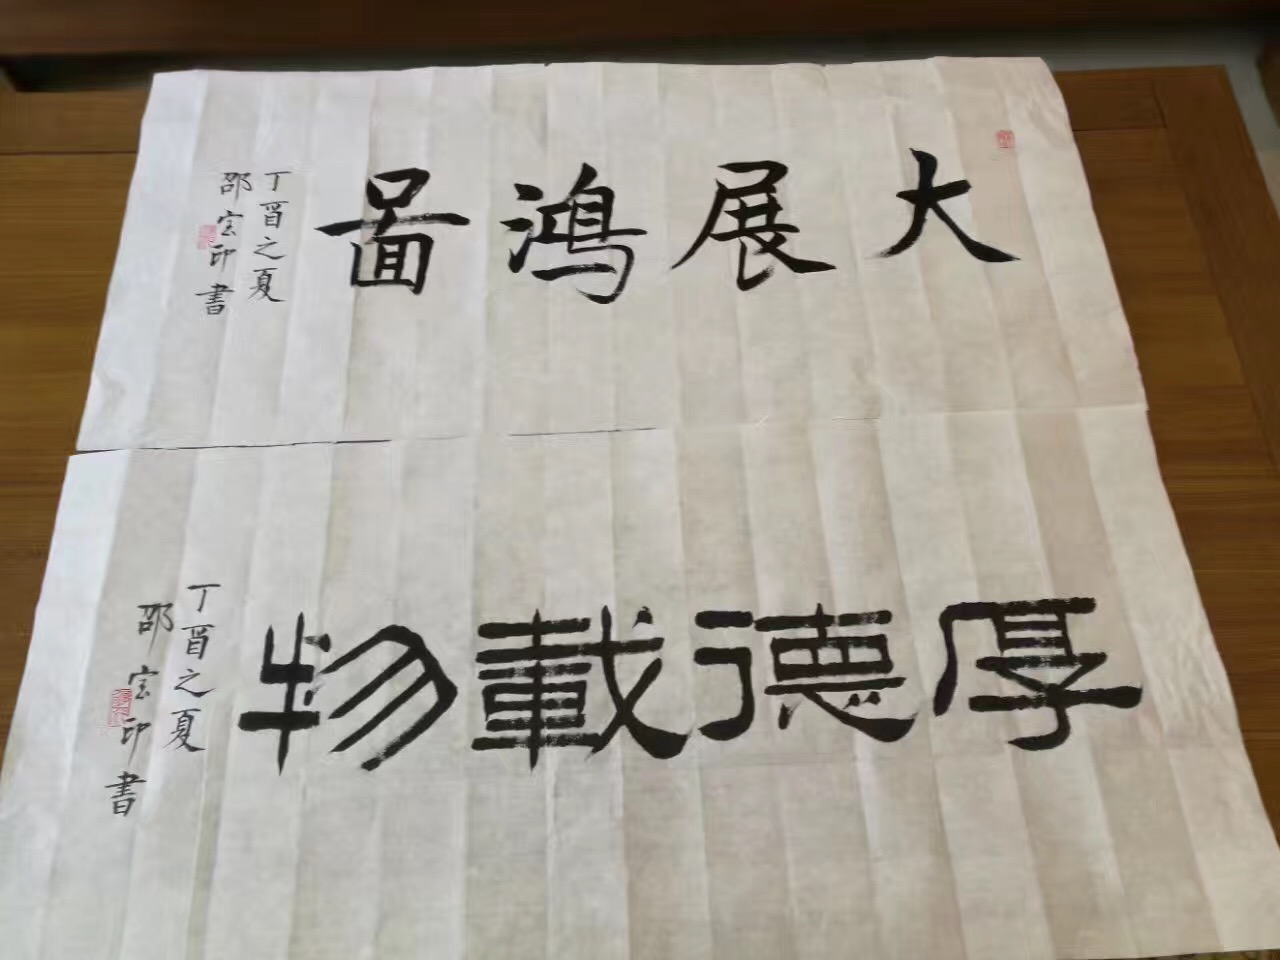 大展鴻啚
丁酉之夏
邵宏印書
厚德載物
丁酉之夏
邵宏印書